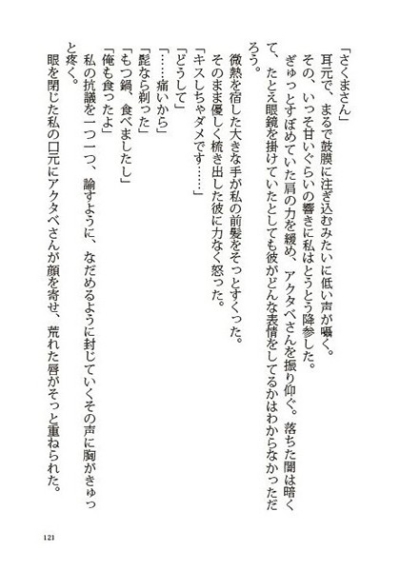 「さくまさん」
　耳元で、まるで鼓膜に注ぎ込むみたいに低い声が囁く。
　その、いっそ甘いぐらいの響きに私はとうとう降参した。
　ぎゅっとすぼめていた肩の力を緩め、アクタベさんを振り仰ぐ。落ちた闇は暗く
て、たとえ眼鏡を掛けていたとしても彼がどんな表情をしてるかはわからなかっただ
ろう。
　微熱を宿した大きな手が私の前髪をそっとすくった。
　そのまま優しく梳き出した彼に力なく怒った。
「キスしちゃダメです……」
「どうして」
「……痛いから」
「髭なら剃った」
「もつ鍋、食べましたし」
「俺も食ったよ」
　私の抗議を一つ一つ、諭すように、なだめるように封じていくその声に胸がきゅっ
と疼く。
　眼を閉じた私の口元にアクタベさんが顔を寄せ、荒れた唇がそっと重ねられた。
121